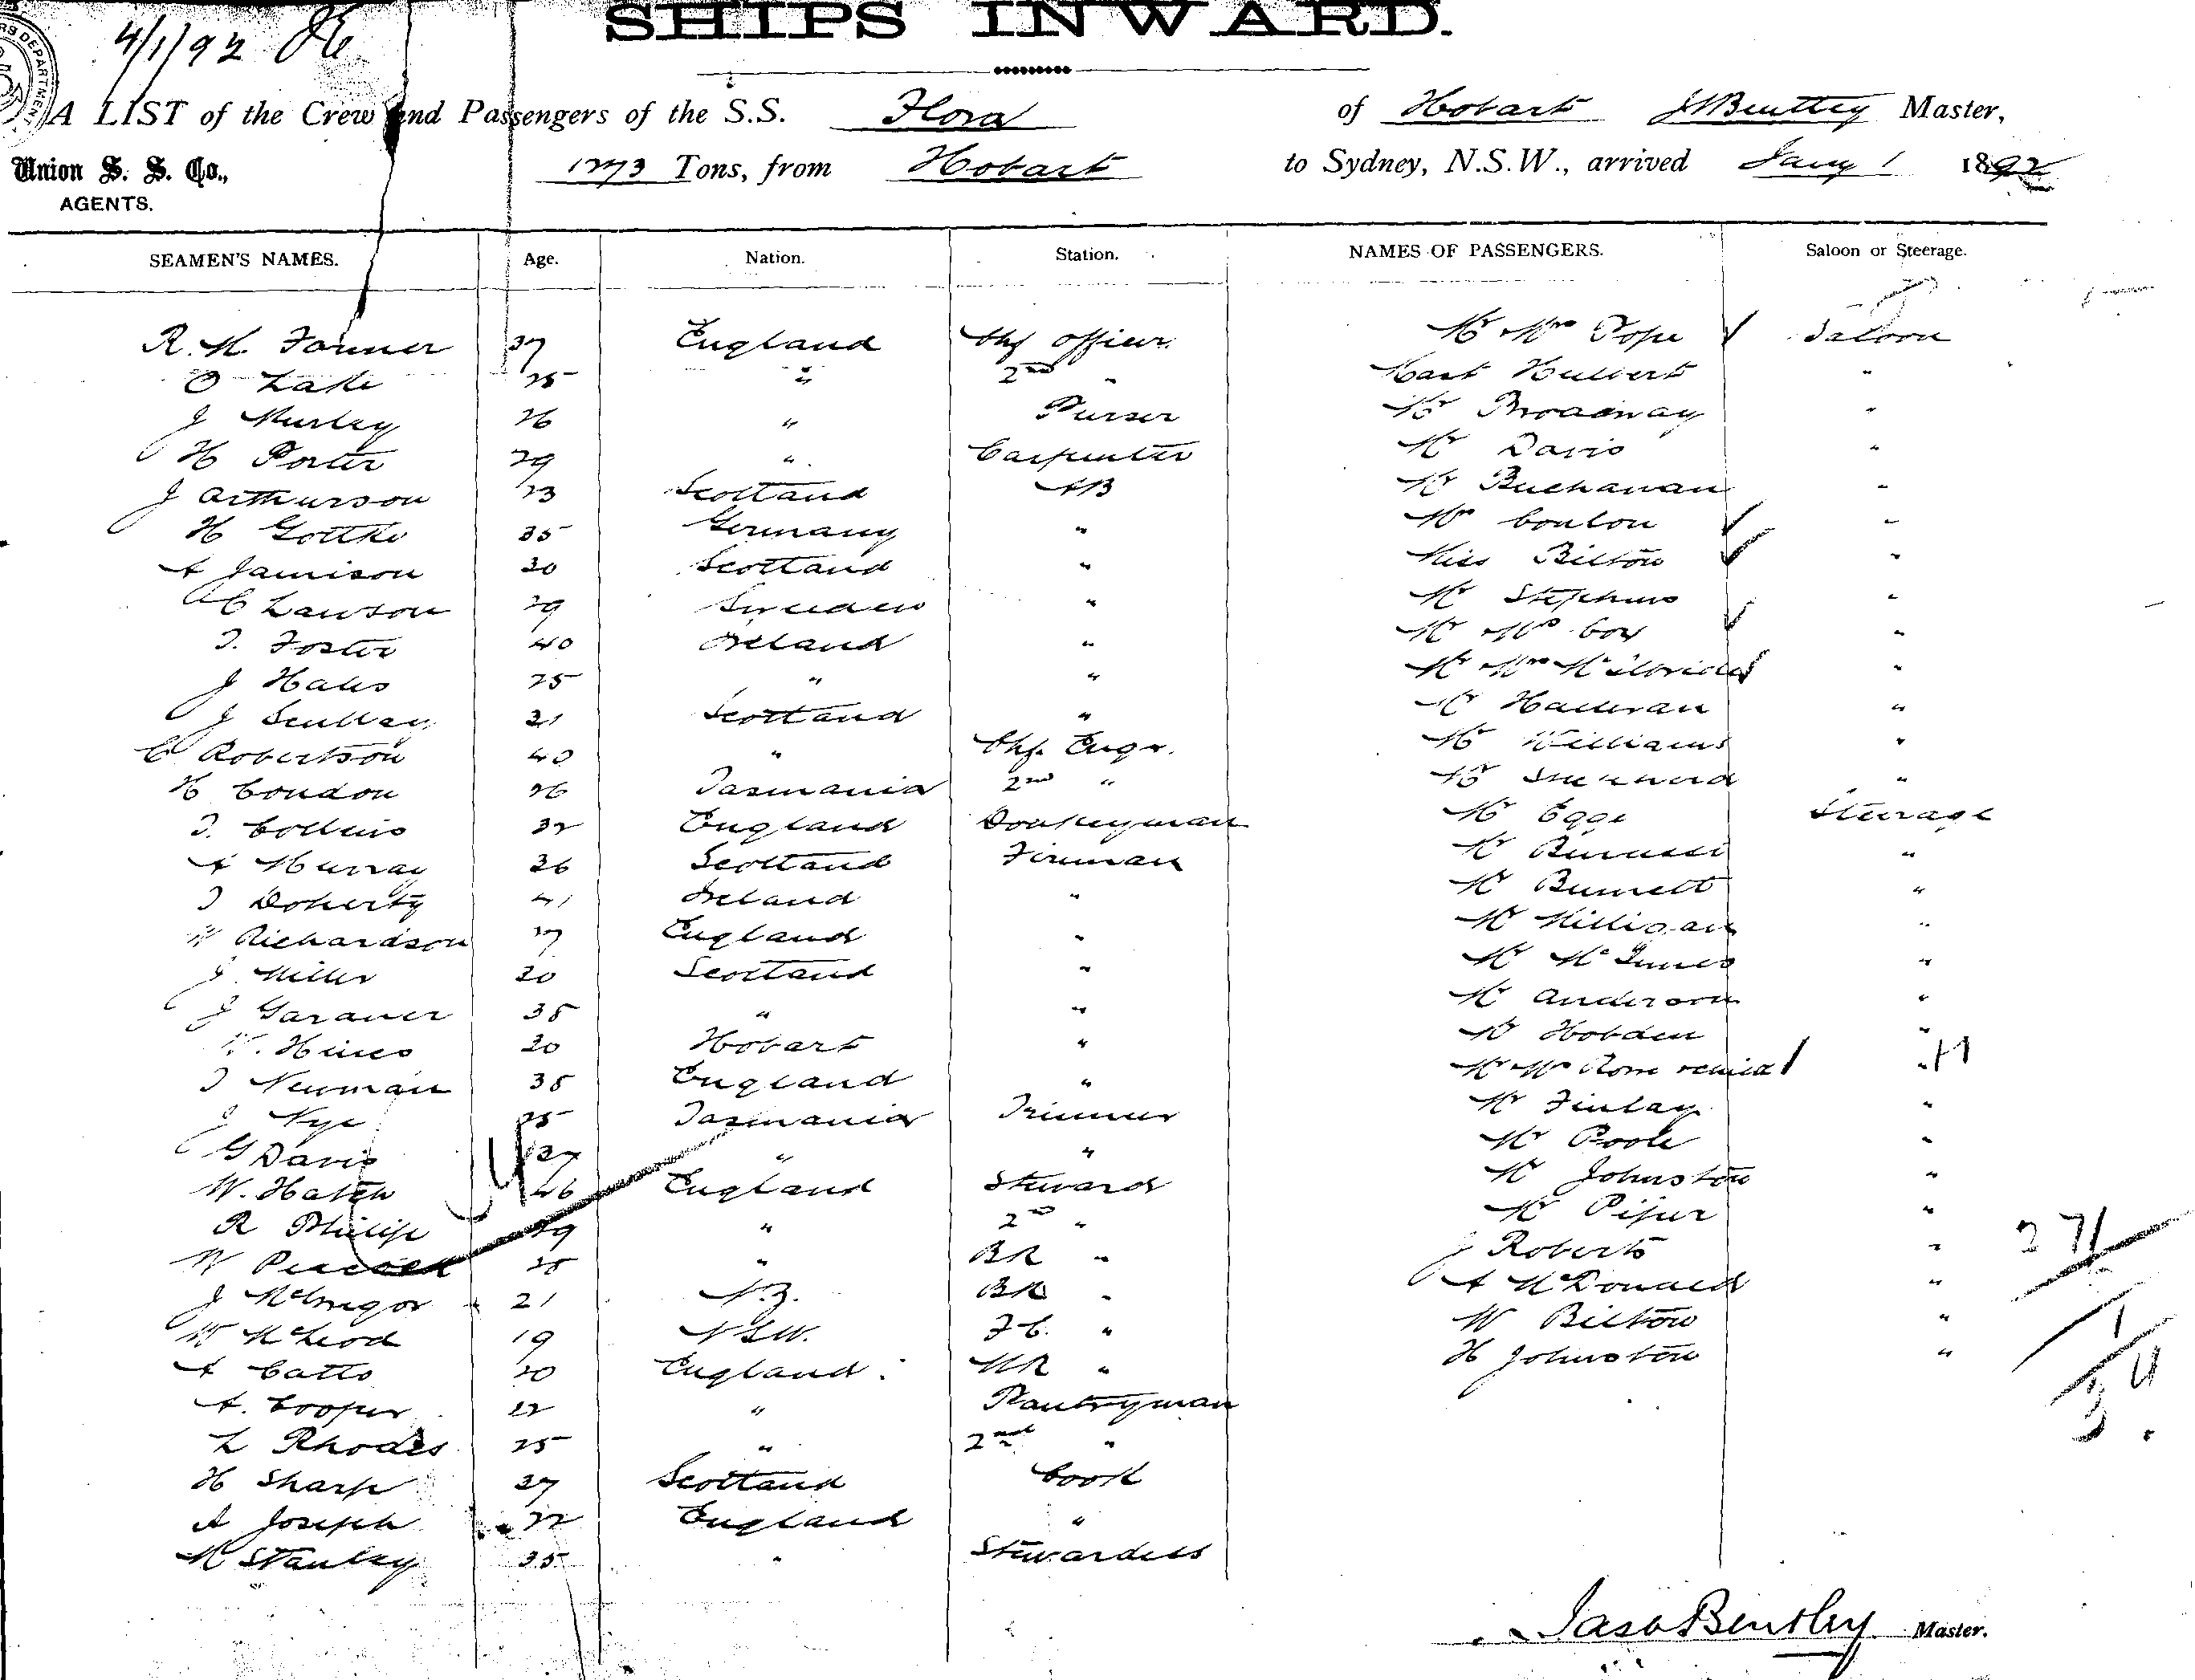 4/1/92
SHIPS INWARD.
A LIST of the Crew and Passengers of the S.S. Flora of Hobart J Bentley Master,
Union S. S. Co., 1273 Tons, from Hobart to Sydney, N.S.W., arrived Jany 1 1892
AGENTS.
SEAMEN'S NAMES. Age. Nation. Station. NAMES OF PASSENGERS. Saloon or Steerage.
R. M. Farmer 37 England Chf Officer Mr Mrs Pope Saloon
O Lake 25 " 2nd " Hulbert "
J Murley 26 " Purser Mr Broadway "
H Porter 29 " Carpenter Mr Davis "
J Arthurson 23 Scotland AB Mr Buchanan "
H Gottke 35 Germany " Mrs Coulon "
A Jamison 30 Scotland " Miss Bilton "
C Lawson 29 Sweden " Mr Stephens "
T. Foster 40 Ireland " Mr Mrs Cox "
J Hales 25 " " Mr Mrs "
J Scullay 21 Scotland " Mr Halloran "
C Robertson 40 " Chf. Engr. Mr Williams "
H Condon 26 Tasmania 2nd " Mr "
T. Collins 32 England Donkeyman Mr Eggs Steerage
A Murray 36 Scotland Fireman Mr "
T Doherty 41 Ireland " Mr Burnett "
Richardson 27 England " Mr Milligan "
J. Miller 30 Scotland " Mr McInnes "
J Gardner 35 " " Mr Anderson "
W. Hines 30 Hobart " Mr Hobden "
T Newman 35 England " Mr Mrs Rose "
J Nye 25 Tasmania Trimmer Mr Finlay "
G Davis 27 " " Mr Poole "
W. Hatch 46 England Steward Mr Johnston "
R Philip 29 " 2nd " Mr Piper "
W Peacock 25 " BR " J Roberts "
J McGregor 21 N.Z. BR " A McDonald "
W McLeod 19 NSW. F.C. " W Bilton "
A Catto 20 England MR " H Johnston "
A. Cooper 22 " Pantryman
L Rhodes 25 " 2nd "
H Sharp 27 Scotland Cook
A Joseph 22 England "
M Stanley 35 " Stewardess
271
Jas Bentley Master.